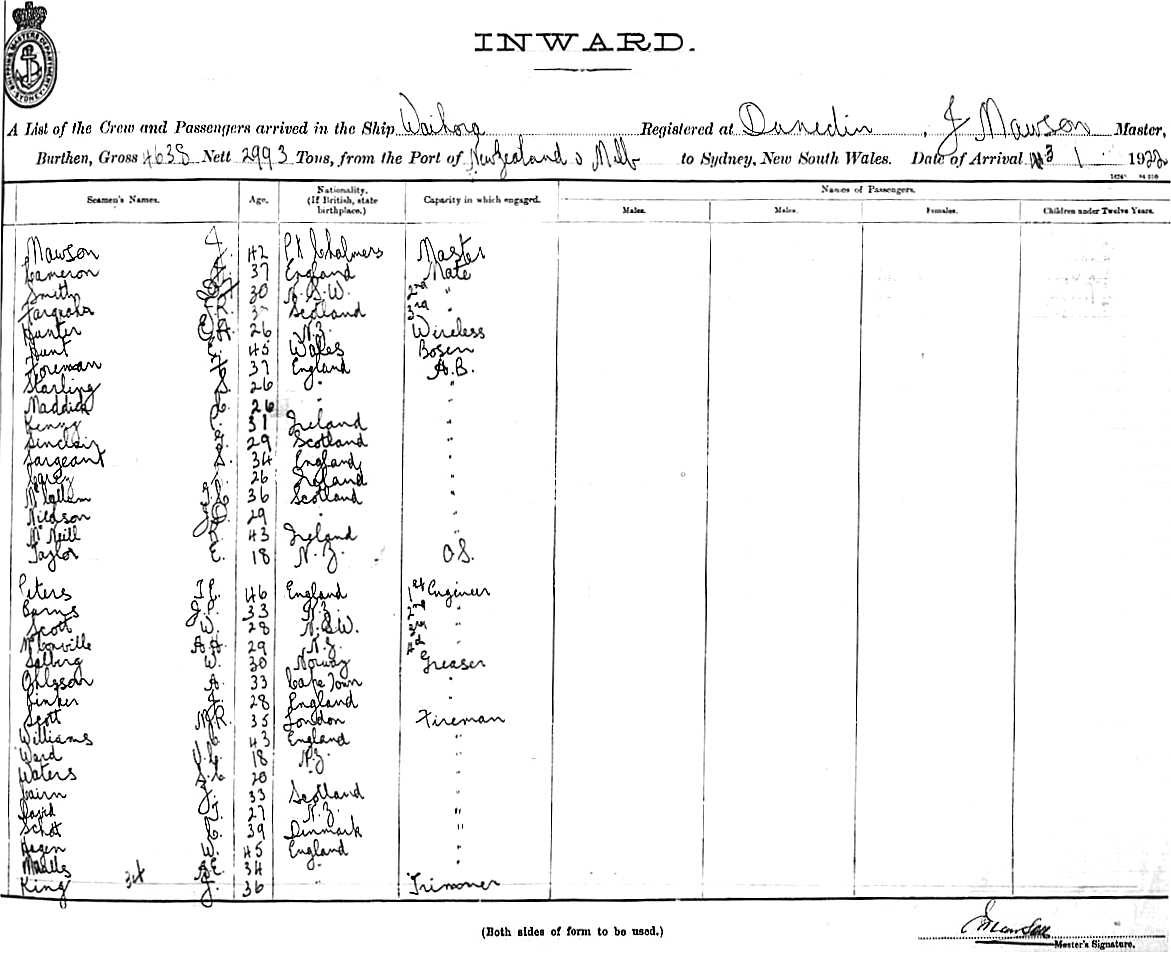 SHIPPING MASTERS DEPARTMENT SYDNEY
INWARD.
A List of the Crew and Passengers arrived in the Ship Waihora Registered at Dunedin, J Mawson Master,
Burthen, Gross 4638 Nett 2993 Tons, from the Port of New Zealand & Melb to Sydney, New South Wales. Date of Arrival 3 1 1922
Seamen's Names. Age. Nationality. (If British, state birthplace.) Capacity in which engaged. Names of Passengers.
Males. Males. Females. Children under Twelve Years.
Mawson J. 42 Pt Chalmers Master
Cameron 37 England Mate
Smith 30 N.S.W. 2nd "
R. Scotland 3rd "
Hunter E.A. 26 N.Z. Wireless
Hunt E. 45 Wales Bosun
Foreman 37 England A.B.
Starling S. 26 " "
Maddick 26 "
Kenny 31 Ireland "
Sinclair 29 Scotland "
Sargeant S. 34 England "
26 Ireland "
36 Scotland "
29 " "
McNeill R. 43 Ireland "
Taylor E. 18 N.Z. O.S.
Peters 46 England 1st Engineer
Barns J.P. 33 N.Z. 2nd "
Scott W. 28 N.S.W. 3rd "
McConville A.A. 29 N.Z. 4th "
W. 30 Norway Greaser
Ohlsson A. 33 Cape Town "
28 England "
Scott 35 London Fireman
Williams 43 England "
Ward 18 N.Z. "
Waters 20 " "
Cairn J. 33 Scotland "
27 N.Z. "
Schot 39 Denmark "
Hagen W. 45 England "
34 " "
King 34 J. 36 " Trimmer
(Both sides of form to be used.)
J Mawson
Master's Signature.